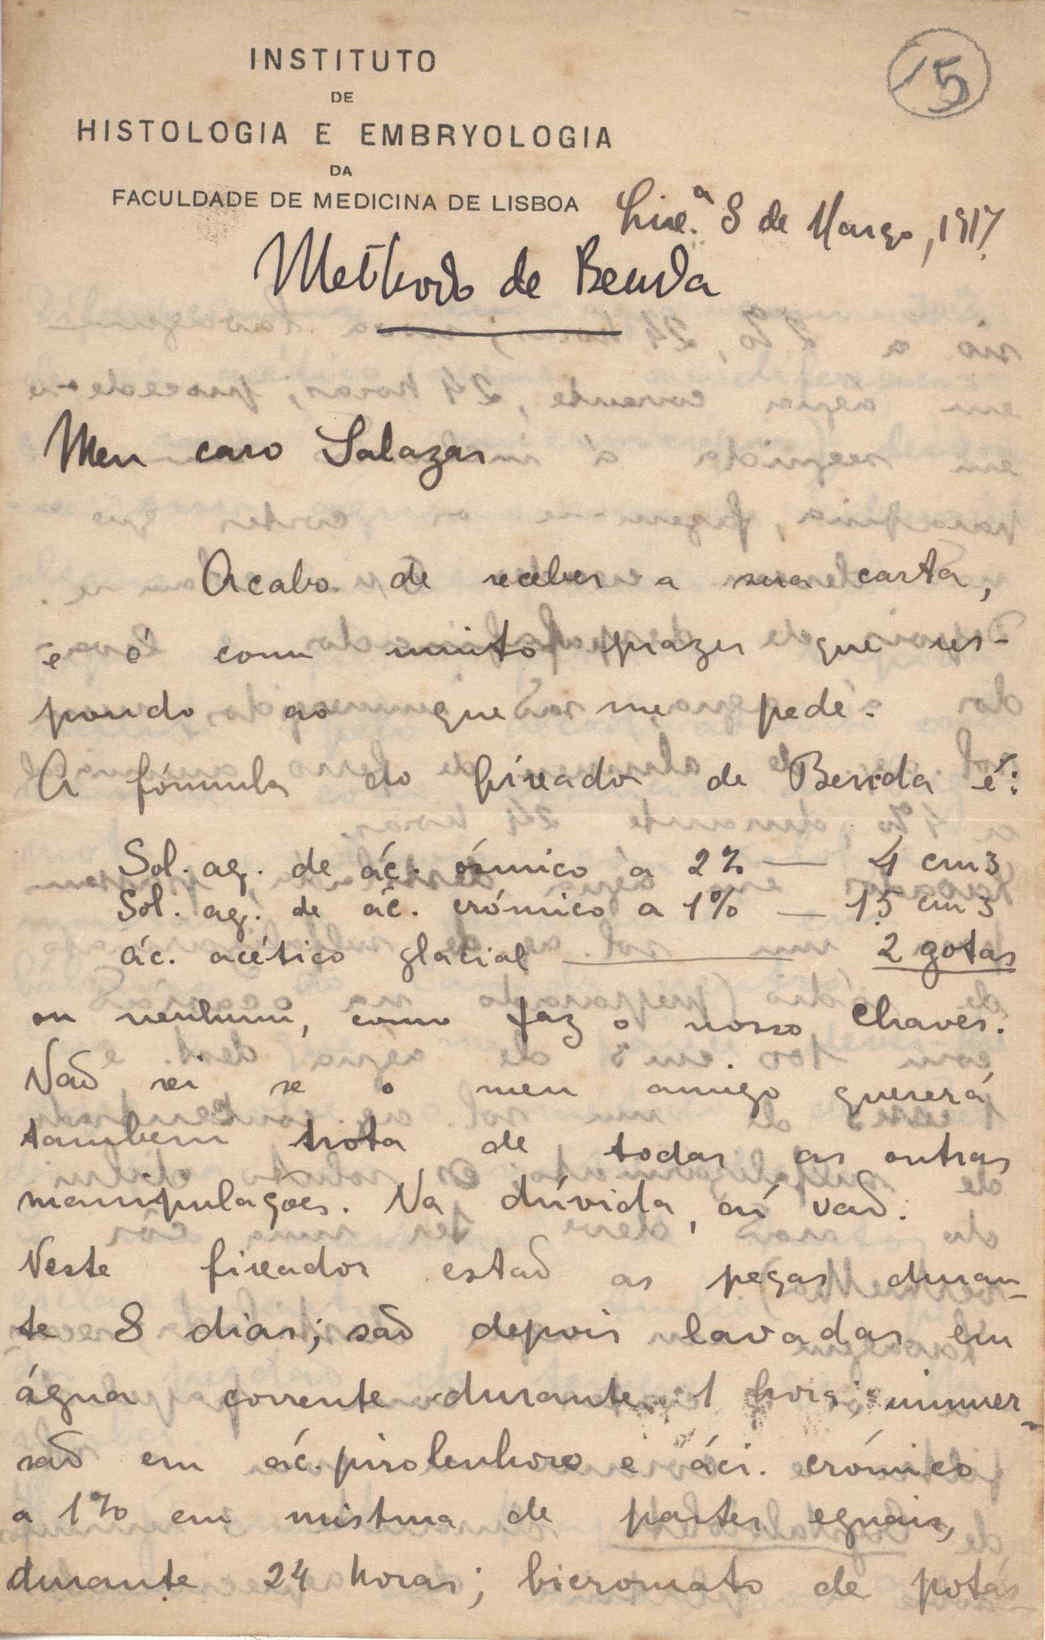 INSTITUTO
DE
HISTOLOGIA E EMBRYOLOGIA
DA
FACULDADE DE MEDICINA DE LISBOA
15
8 de Março, 1917.
Methodo de Benda
Meu caro Salazar
Acabo de receber a sua carta,
e é com muito prazer que res-
pondo ao que me pede.
A fórmula do fixador de Benda é:
Sol. aq. de ác. ósmico a 2% — 4 cm3
Sol. aq. de ác. crómico a 1% — 15 cm3
ác. acético glacial — 2 gotas
ou nenhum, como faz o nosso Chaves.
Não sei se o meu amigo quererá
tambem nota de todas as outras
manipulações. Na dúvida, aí vaõ.
Neste fixador estaõ as peças duran-
te 8 dias; saõ depois lavadas em
água corrente durante 1 hora; immer-
saõ em ác. pirolenhoso e áci. crómico
a 1% em mistura de partes eguais,
durante 24 horas; bicromato de potás